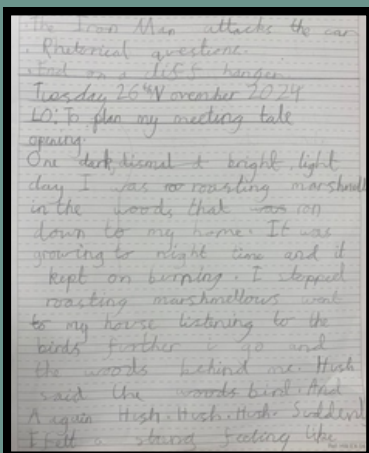 The Iron Man attacks the car
. Rhetorical questions.
. End on a cliff hanger
Tuesday 26th November 2024
LO: To plan my meeting tale
opening.
One dark, dismal & bright, light
day I was roasting marshmell
in the woods that ran
down to my home. It was
growing to night time and it
kept on burning. I stopped
roasting marshmellows went
to my house listening to the
birds further i go and
the woods behind me. Hush
said the woods bird. And
Again Hush. Hush. Hush. Suddenl
I felt a feeling like